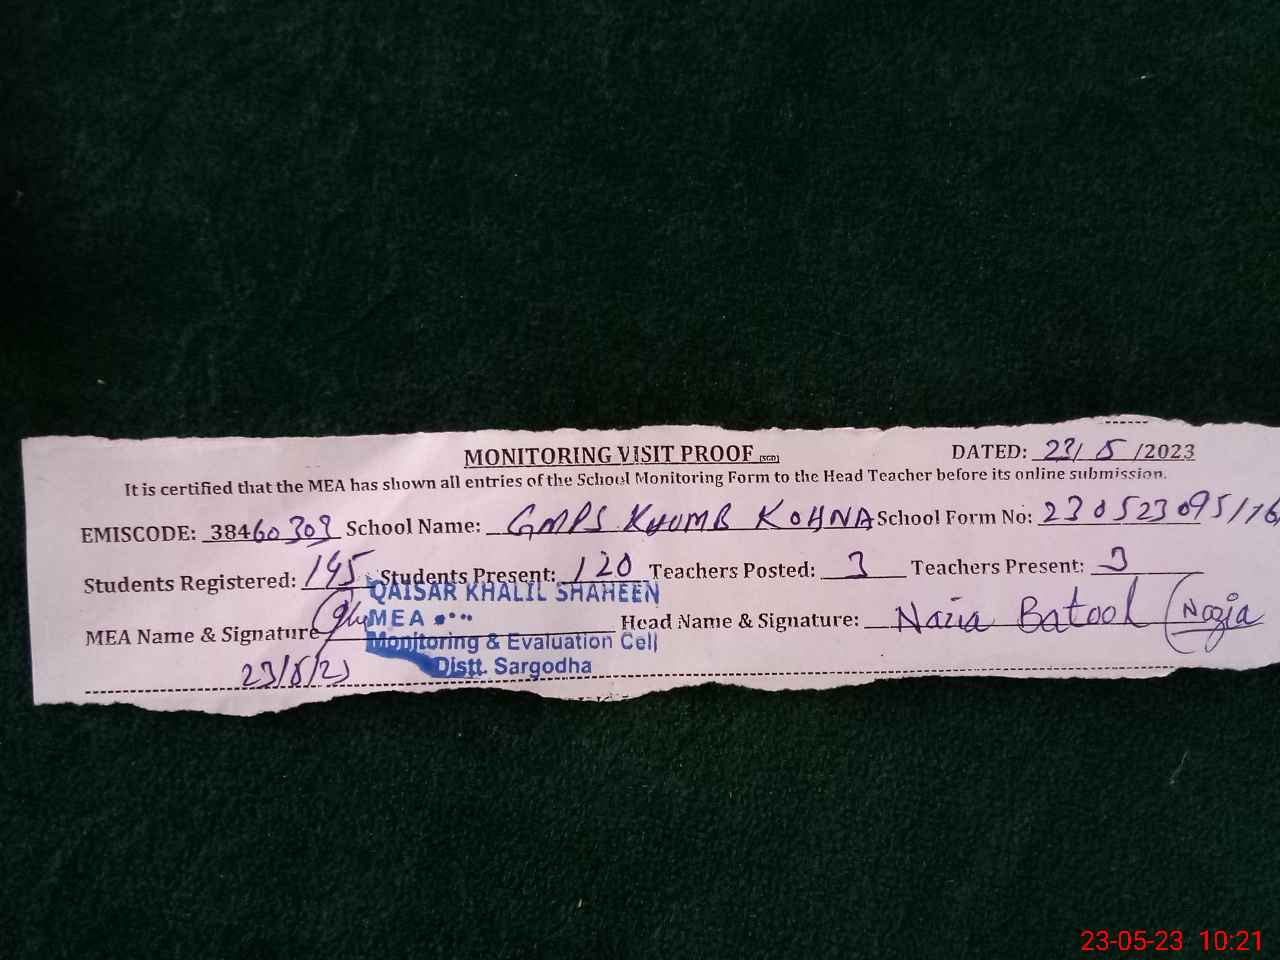 MONITORING VISIT PROOF (SGD) DATED: 23/ 5 /2023
It is certified that the MEA has shown all entries of the School Monitoring Form to the Head Teacher before its online submission.
EMISCODE: 38460303 School Name: GMPS KHUMB KOHNA School Form No: 230523095116
Students Registered: 145 Students Present: 120 Teachers Posted: 3 Teachers Present: 3
QAISAR KHALIL SHAHEEN
MEA
MEA Name & Signature Head Name & Signature: Nazia Batool (Nazia
Monitoring & Evaluation Cell
Distt. Sargodha
23/5/23
23-05-23 10:21